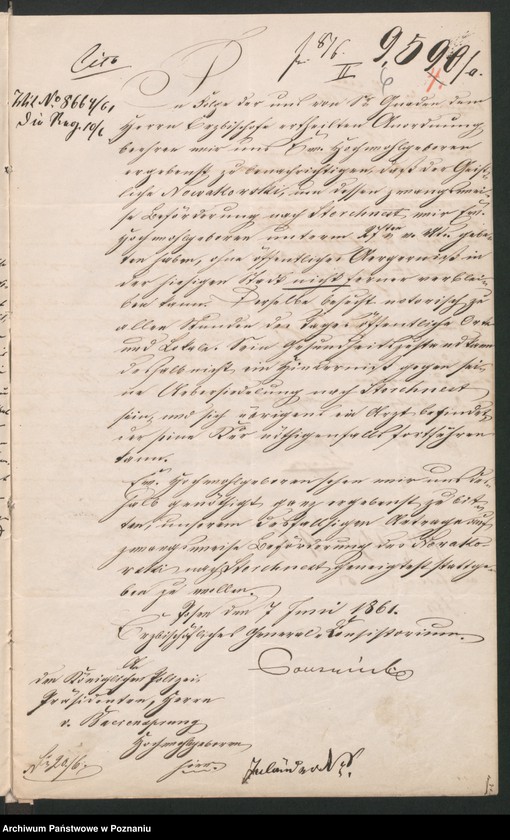 Cito
pr 8/6.
II
9,590/a.
6
4.
Tit N° 8667/61
Die Reg. 10/6
In Folge der uns von Sr Gnaden dem
Herrn Erzbischofe ertheilten Anordnung
beehren wir uns Ew. Hochwohlgeboren
ergebenst zu benachrichtigen, daß der Geist-
liche Nowakowski, um dessen zwangswei-
se Beförderung nach Storchnest, wir Ew.
Hochwohlgeboren unterm v. Mts. gebe-
ten haben, ohne öffentliches Aergerniß in
der hiesigen Stadt nicht ferner verblei-
ben kann. Derselbe besucht notorisch zu
allen Stunden des Tages öffentliche Orte
und Lokale. Sein Gesundheitszustand kann
deshalb nicht ein Hinderniß gegen sei-
ne Uebersiedelung nach Storchnest
sein, und sich übrigens ein Arzt befindet,
der seine Kur nöthigenfalls fortführen
kann.
Ew. Hochwohlgeboren sehen wir uns
halb genöthigt ganz ergebenst zu bit-
ten, unserem desfallsigen Antrage auf
zwangsweise Beförderung des Nowako-
wski nach Storchnest geneigtest stattge-
ben zu wollen.
Posen den 7 Juni 1861.
Erzbischöfliches General-Konsistorium.
An
den Königlichen Polizei-
Präsidenten, Herrn
v. Baerensprung
Hochwohlgeboren
hier